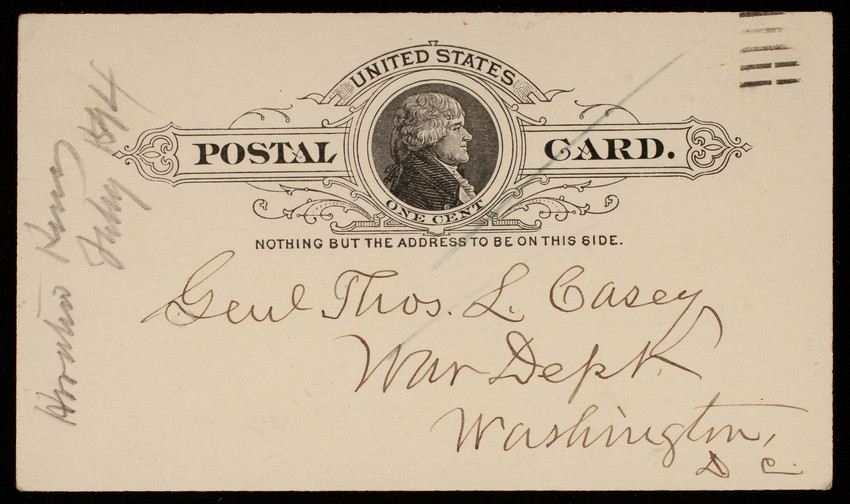 UNITED STATES
POSTAL CARD.
ONE CENT
NOTHING BUT THE ADDRESS TO BE ON THIS SIDE.
Genl Thos. L. Casey
War Dept.
Washington,
D C.
Horatio King
July 1894